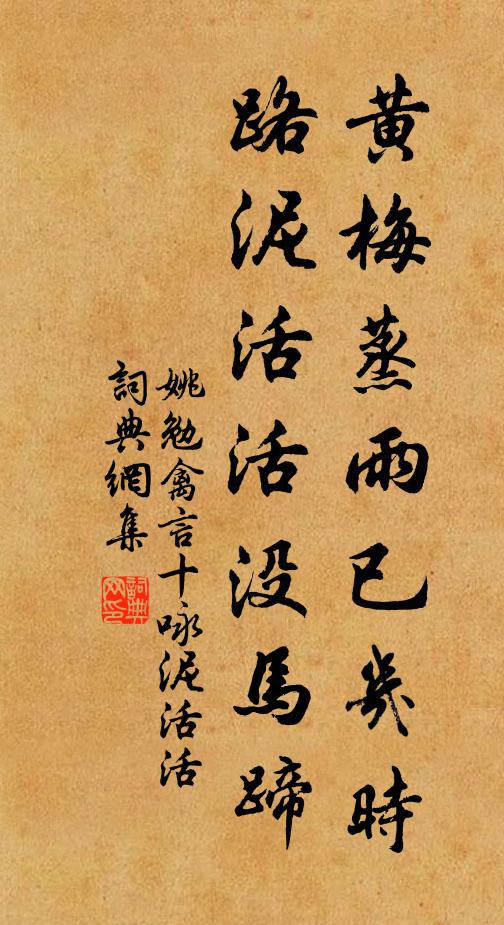 黃梅蒸雨已幾時
路泥活活没馬蹄
姚勉禽言十咏泥活活
詞典網集
詞典
网印